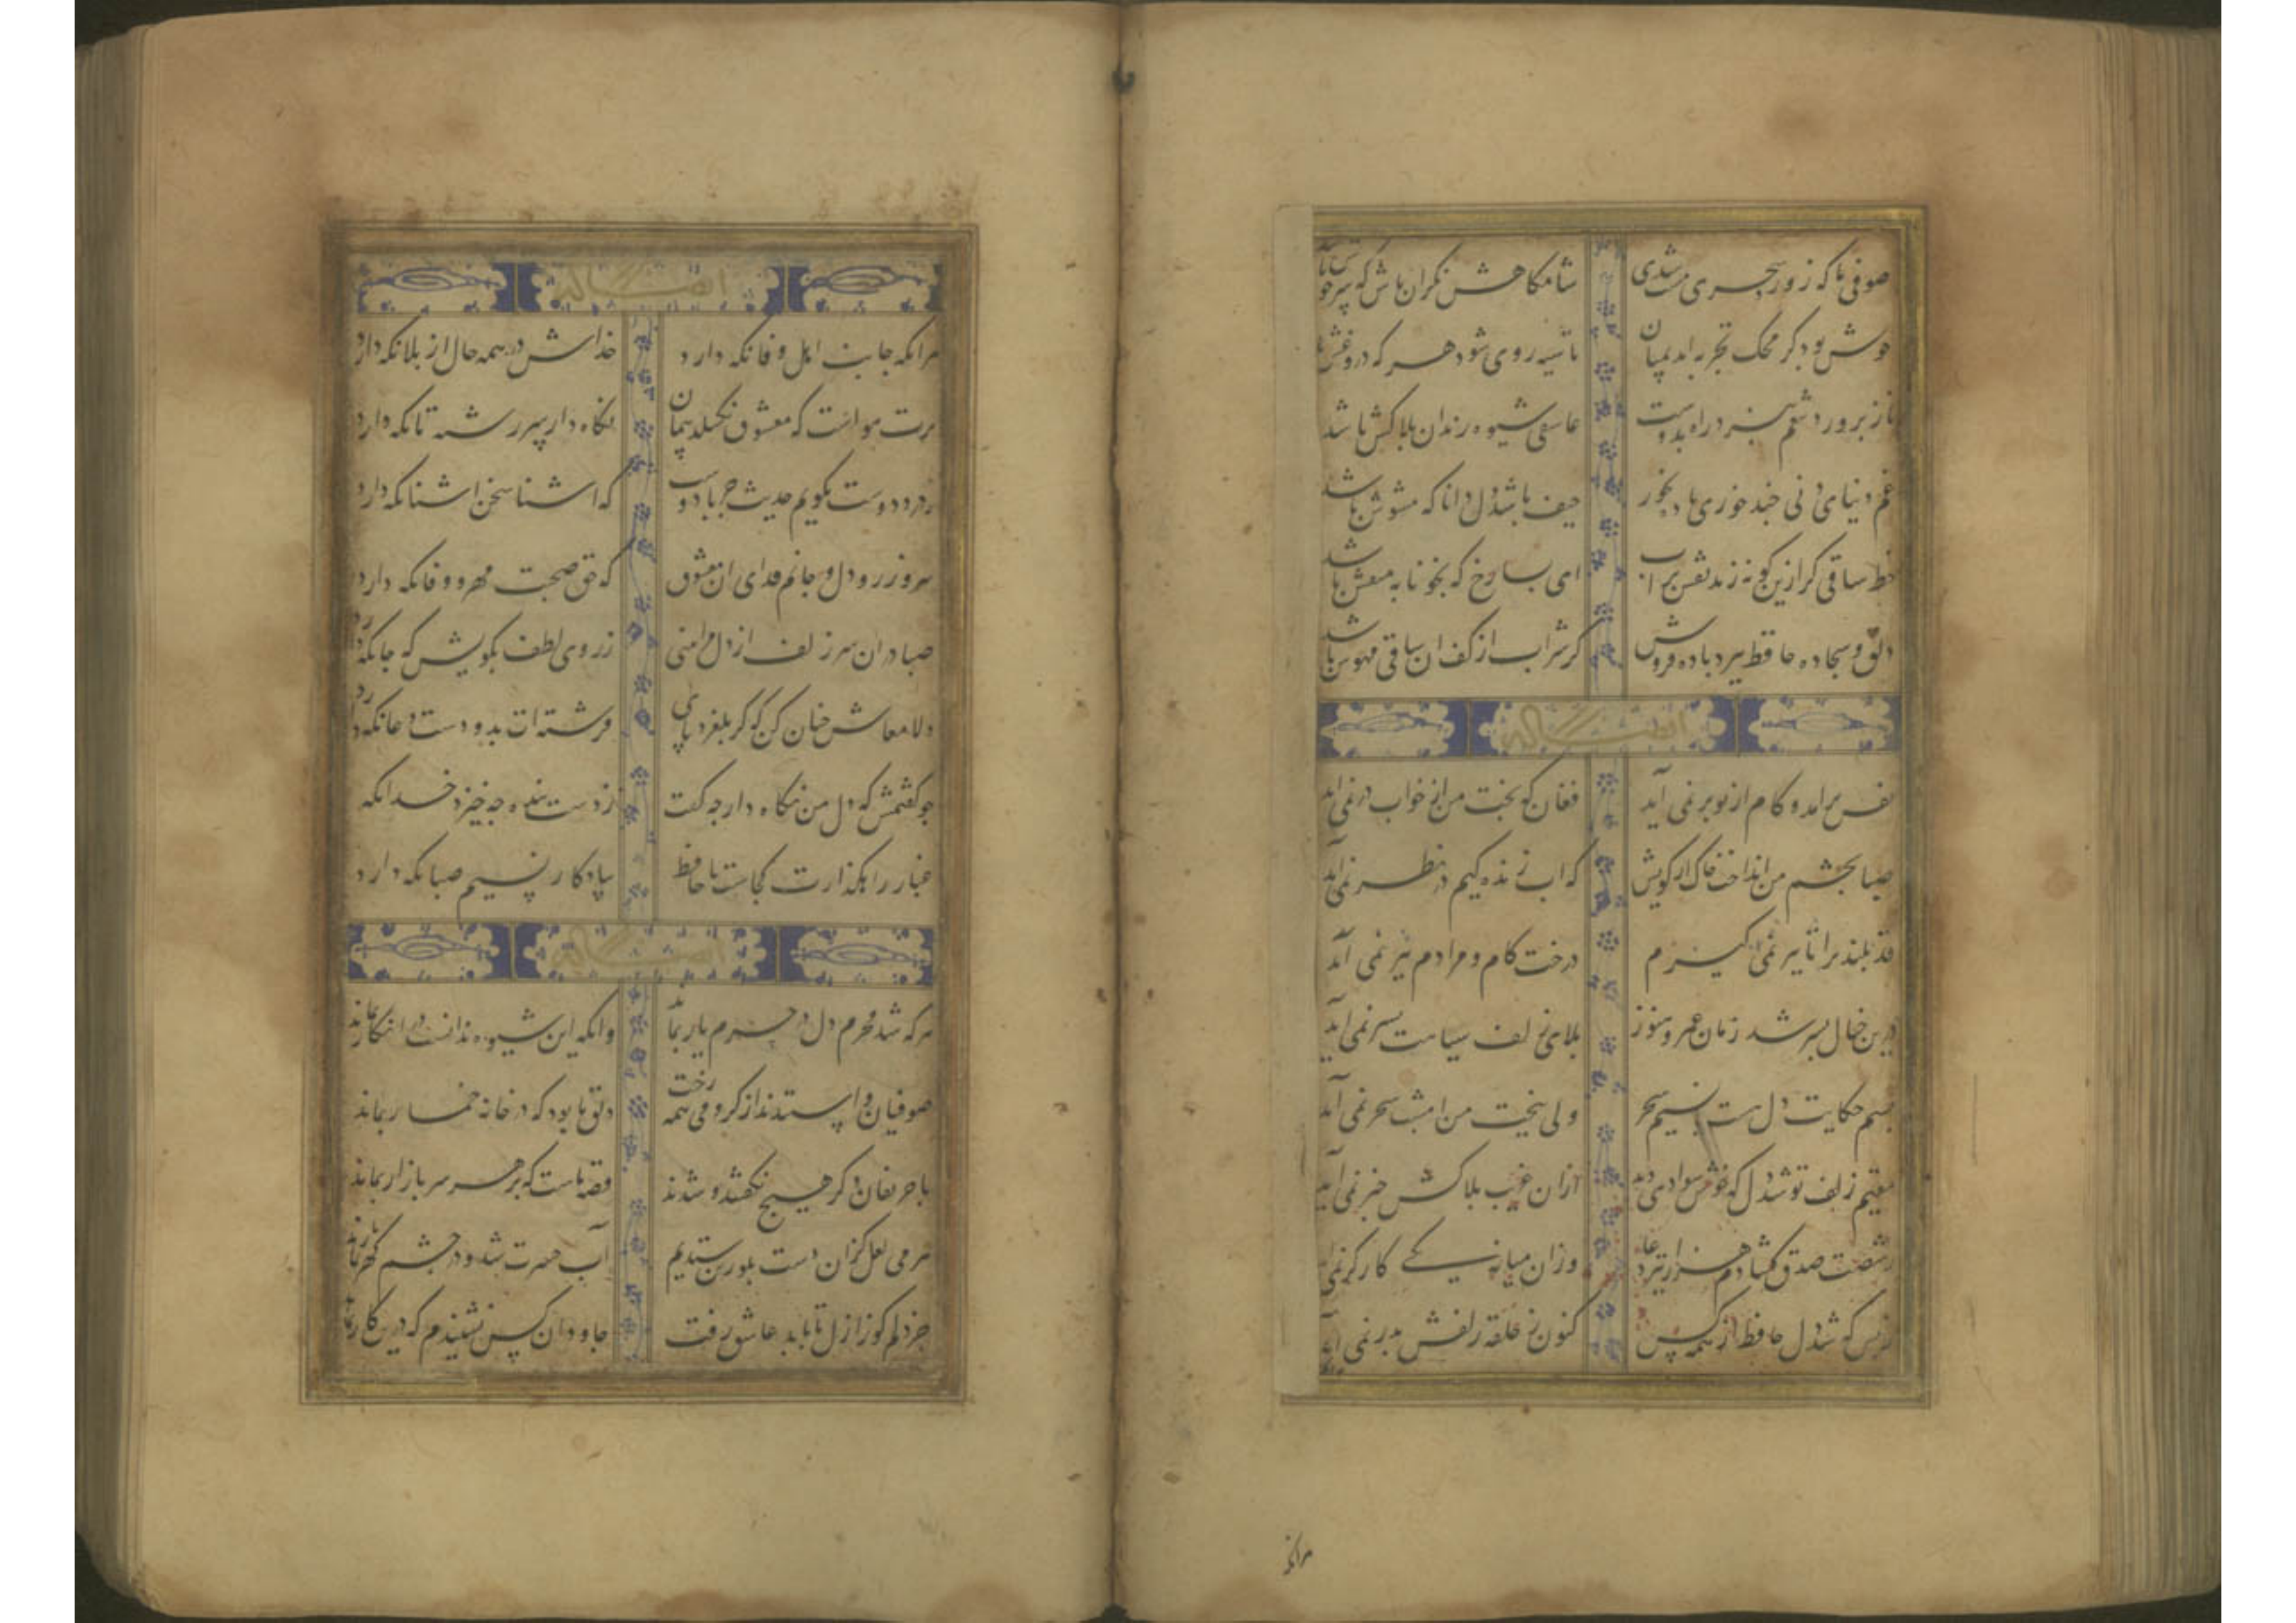 صوفی ما که ز ورد سحری مست شدی شامگاهش نگران باش که سرخوش باشد
خوش بود گر محک تجربه آید بمیان تا سیه روی شود هر که دروغش باشد
ناز پرورد تنعم نبرد راه بدوست عاشقی شیوه رندان بلاکش باشد
غم دنیای دنی چند خوری باده بخور حیف باشد دل دانا که مشوش باشد
خط ساقی گر ازین گونه زند نقش بر آب ای بسا رخ که بخونابه منقش باشد
دلق و سجاده حافظ ببرد باده فروش گر شراب از کف آن ساقی مهوش باشد
ایضا له
نفس برآمد و کام از تو بر نمی آید فغان که بخت من از خواب در نمی آید
صبا بچشم من انداخت خاکی از کویش که آب زندگیم در نظر نمی آید
قد بلند ترا تا ببر نمی گیرم درخت کام و مرادم ببر نمی آید
درین خیال بسر شد زمان عمر و هنوز بلای زلف سیاهت بسر نمی آید
بسم حکایت دل هست با نسیم سحر ولی ببخت من امشب سحر نمی آید
مقیم زلف تو شد دل که خوش سوادی دید از آن غریب بلاکش خبر نمی آید
ز شصت صدق گشادم هزار تیر دعا وزان میانه یکی کارگر نمی
ز بس که شد دل حافظ از همه کس کنون ز حلقه زلفش بدر نمی آید
مرانکه
ایضا له
مرانکه جانب اهل وفا نگه دارد خداش در همه حال از بلا نگه دارد
گرت هواست که معشوق نگسلد پیمان نگاه دار سر رشته تا نگه دارد
ز درد دوست نگویم حدیث جز با دوست که آشنا سخن آشنا نگه دارد
سر و زر و دل و جانم فدای آن معشوق که حق صحبت مهر و وفا نگه دارد
صبا در آن سر زلف ار دل مرا بینی ز روی لطف بگویش که جا نگه دارد
دلا معاش چنان کن که گر بلغزد پای فرشته ات بدو دست دعا نگه دارد
چو گفتمش که دل من نگاه دار چه گفت ز دست بنده چه خیزد خدا نگه
غبار راهگذارت کجاست تا حافظ بیادگار نسیم صبا نگه دارد
ایضا له
هر که شد محرم دل در حرم یار بماند وانکه این شیوه ندانست در انکار بماند
صوفیان واستدند از گرو می همه رخت دلق ما بود که در خانه خمار بماند
با حریفان دگر هیچ نگفتند و شدند قصه ماست که بر هر سر بازار بماند
هر می لعل کزان دست بلورین ستدیم آب حسرت شد و در چشم گهربار بماند
جز دلم کو ز ازل تا بابد عاشق رفت جاودان کس نشنیدم که درین کار بماند